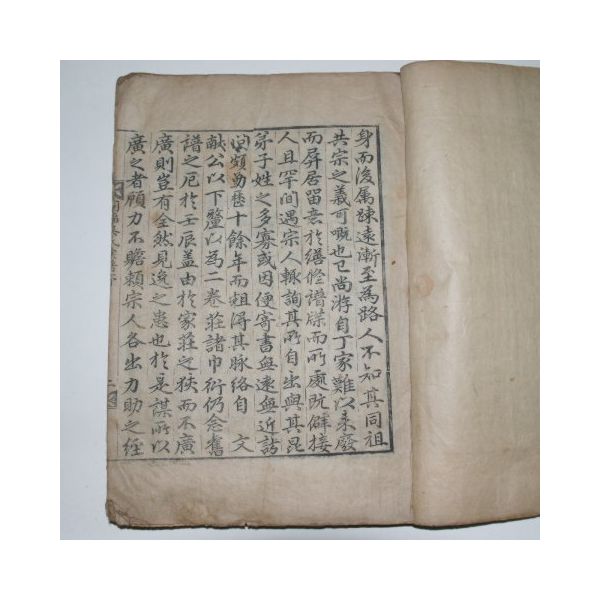 身而後属踈遠漸至為路人不知其同祖
共宗之義可嘅也已尚游自丁家難以来廢
而屏居留意於繕修譜牒而所處旣僻接
人且罕間遇宗人輙詢其所自出與其昆
弟子姓之多寡或因便寄書無遠無近諮
詢頗勤歷十餘年而粗得其脉絡自 文
獻公以下釐以為二卷莊諸巾衍仍念舊
譜之厄於壬辰盖由於家莊之狹而不廣
廣則豈有全然見逸之患也於是謀所以
廣之者顧力不贍賴宗人各出力助之經